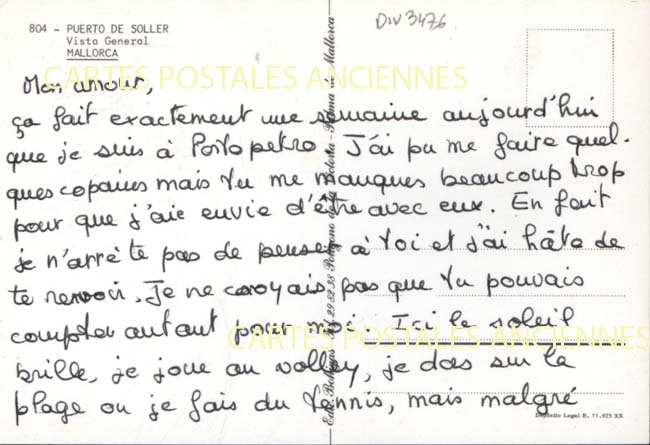 804 - PUERTO DE SOLLER
Vista General
MALLORCA
DIV 3476
CARTES POSTALES ANCIENNES
Mon amour,
ça fait exactement une semaine aujourd'hui
que je suis à Portopetro. J'ai pu me faire quel-
ques copains mais tu me manques beaucoup trop
pour que j'aie envie d'être avec eux. En fait
je n'arrête pas de penser à toi et j'ai hâte de
te revoir. Je ne croyais pas que tu pouvais
compter autant pour moi. Ici le soleil
CARTES POSTALES ANCIENNES
brille, je joue au volley, je dors sur la
plage ou je fais du tennis, mais malgré
Depósito Legal B. 11.875 XX